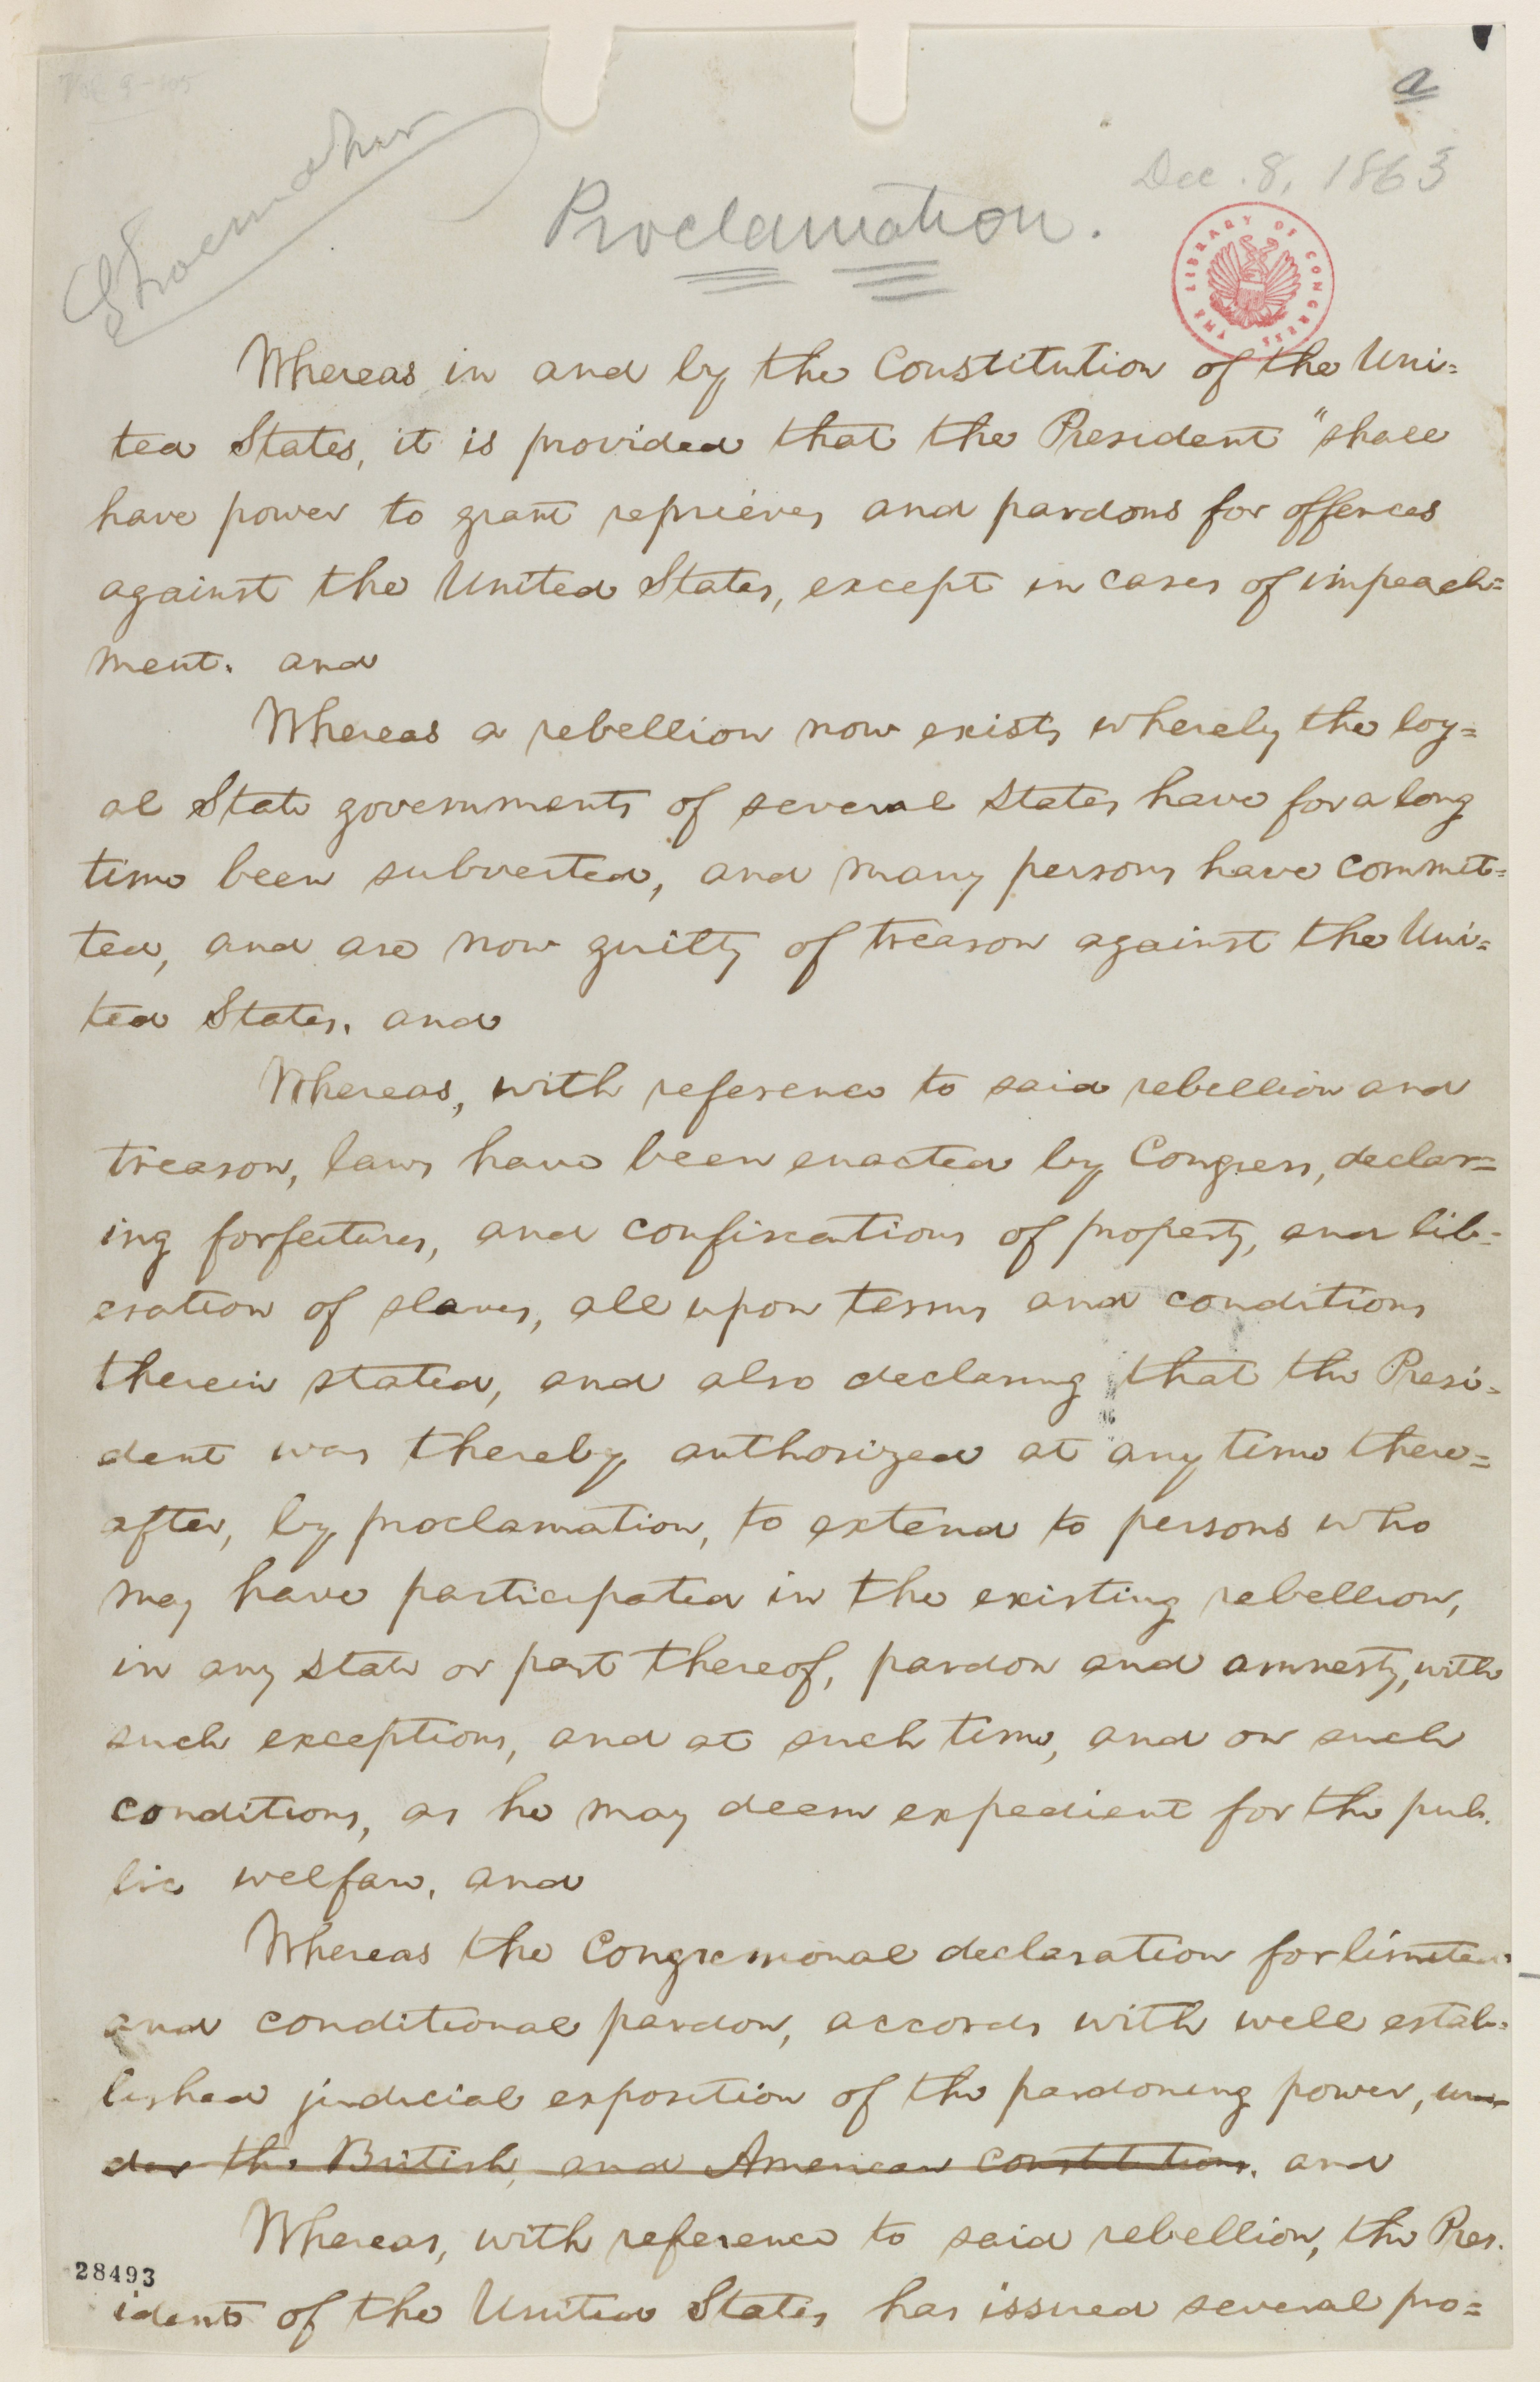 a
Dec. 8, 1863
Shoemaker
Proclamation.
THE LIBRARY OF CONGRESS
Whereas in and by the Constitution of the Uni=
ted States, it is provided that the President "shall
have power to grant reprieves and pardons for offences
against the United States, except in cases of impeach=
ment. and
Whereas a rebellion now exists whereby the loy=
al State governments of several States have for a long
time been subverted, and many persons have commit=
ted, and are now guilty of treason against the Uni=
ted States. and
Whereas, with reference to said rebellion and
treason, laws have been enacted by Congress, declar=
ing forfeitures, and confiscations of property, and lib=
eration of slaves, all upon terms and conditions
therein stated, and also declaring that the Presi=
dent was thereby authorized at any time there=
after, by proclamation, to extend to persons who
may have participated in the existing rebellion,
in any State or part thereof, pardon and amnesty, with
such exceptions, and at such time, and on such
conditions, as he may deem expedient for the pub.
lic welfare, and
Whereas the Congressional declaration for limited
and conditional pardon, accords with well estab=
lished judicial exposition of the pardoning power, un
der the British, and American constitutions. and
Whereas, with reference to said rebellion, the Pres.
ident of the United States has issued several pro=
28493